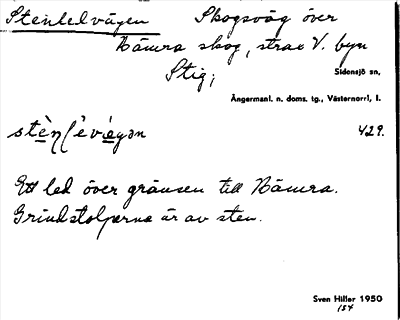 Stenledvägen Skogsväg över
Nämra skog, strax V. byn
Stig;
Sidensjö sn,
Ångermanl. n. doms. tg., Västernorrl. l.
429.
Ett led över gränsen till Nämra.
Grindstolparna är av sten.
Sven Hiller 1950
154